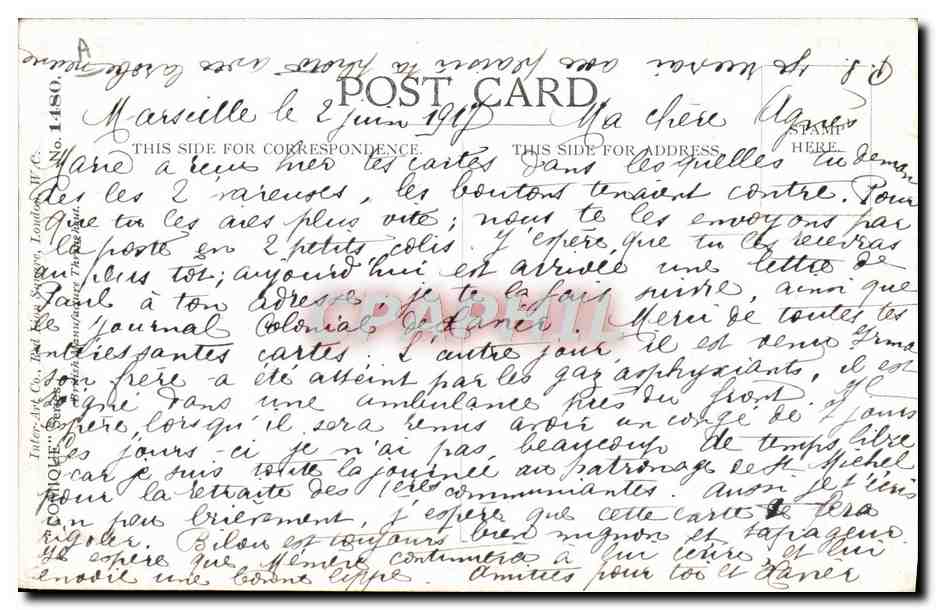 P. S. je verrai avec plaisir ta photo avec la robe
POST CARD.
Marseille le 2 juin 1917 Ma chère Agnès
THIS SIDE FOR CORRESPONDENCE. THIS SIDE FOR ADDRESS.
STAMP
HERE.
Marie a reçu hier tes cartes dans lesquelles tu deman
des les 2 vareuses, les boutons tenaient contre. Pour
que tu les aies plus vite; nous te les envoyons par
la poste en 2 petits colis. J'espère que tu les recevras
au plus tôt; aujourd'hui est arrivée une lettre de
Paul à ton adresse, je te la fais suivre, ainsi que
le journal colonial de Xavier. Merci de toutes tes
intéressantes cartes. L'autre jour il est venu Irma
son frère a été atteint par les gaz asphyxiants, il est
soigné dans une ambulance près du front. Il
espère, lorsqu'il sera remis avoir un congé de 7 jours
Ces jours ci je n'ai pas beaucoup de temps libre
car je suis toute la journée au patronage de St Michel
pour la retraite des 1ères communiantes. Aussi je t'écris
un peu brièvement, j'espère que cette carte te fera
rigoler. Bilou est toujours bien mignon et tapageur
J'espère que Mémère continuera à lui écrire et lui
envoie une bonne lippe. Amitiés pour toi et Xavier
Inter-Art Co., Red Lion Square, London, W.C.
"COMIQUE" Series No. 1480.
British Manufacture Throughout.
A
CPARPHIL